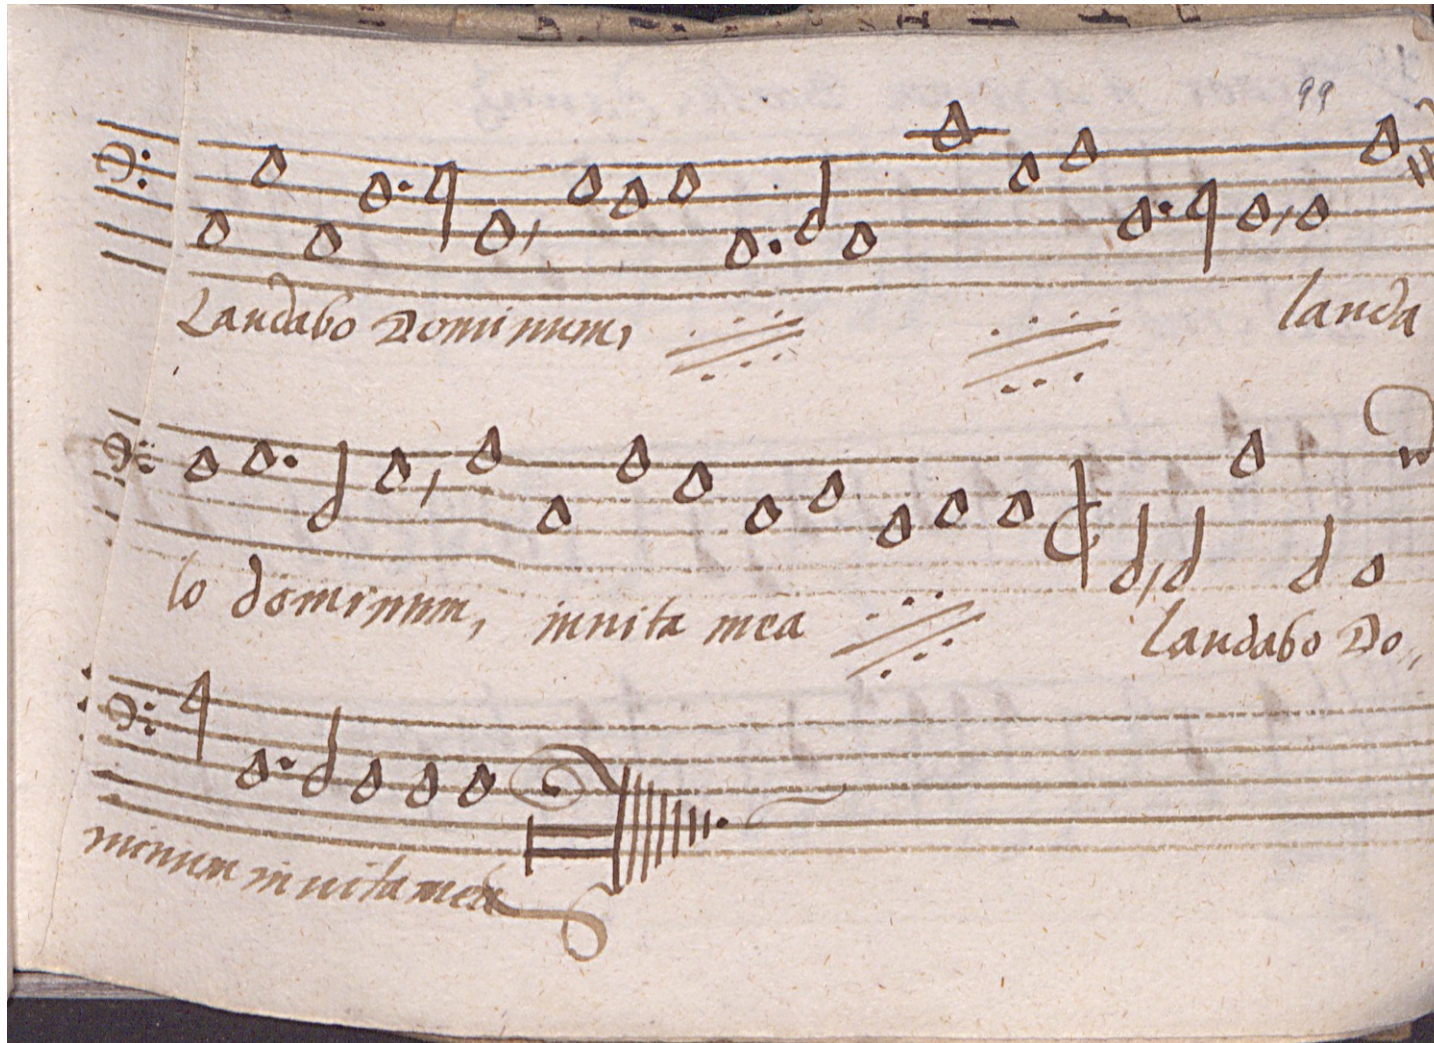 99
Laudabo Dominum, lauda
bo dominum, in vita mea Laudabo Do,,
minum in vita mea